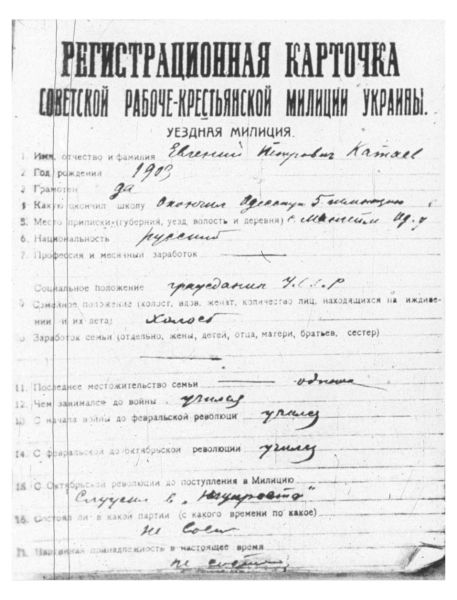 РЕГИСТРАЦИОННАЯ КАРТОЧКА
СОВЕТСКОЙ РАБОЧЕ-КРЕСТЬЯНСКОЙ МИЛИЦИИ УКРАИНЫ.
УЕЗДНАЯ МИЛИЦИЯ.
1. Имя, отчество и фамилия Евгений Петрович Катаев
2. Год рождения 1903
3. Грамотен да
4. Какую окончил школу Окончил Одесскую 5 гимназию
5. Место приписки (губерния, уезд, волость и деревня) с. Мангейм Од. у
6. Национальность русский
7. Профессия и месячный заработок
Социальное положение гражданин У.С.С.Р
9. Семейное положение (холост, вдов, женат, количество лиц, находящихся на иждиве-
нии и их лета) холост
10. Заработок семьи (отдельно, жены, детей, отца, матери, братьев, сестер)
11. Последнее местожительство семьи
12. Чем занимался до войны учился
13. С начала войны до февральской революци учился
14. С февральской до октябрьской революции учился
15. С Октябрьской революции до поступления в Милицию
Служил в "Югироста"
16. Состоял ли в какой партии (с какого времени по какое)
не сост
17. Партийная принадлежность в настоящее время
не состою